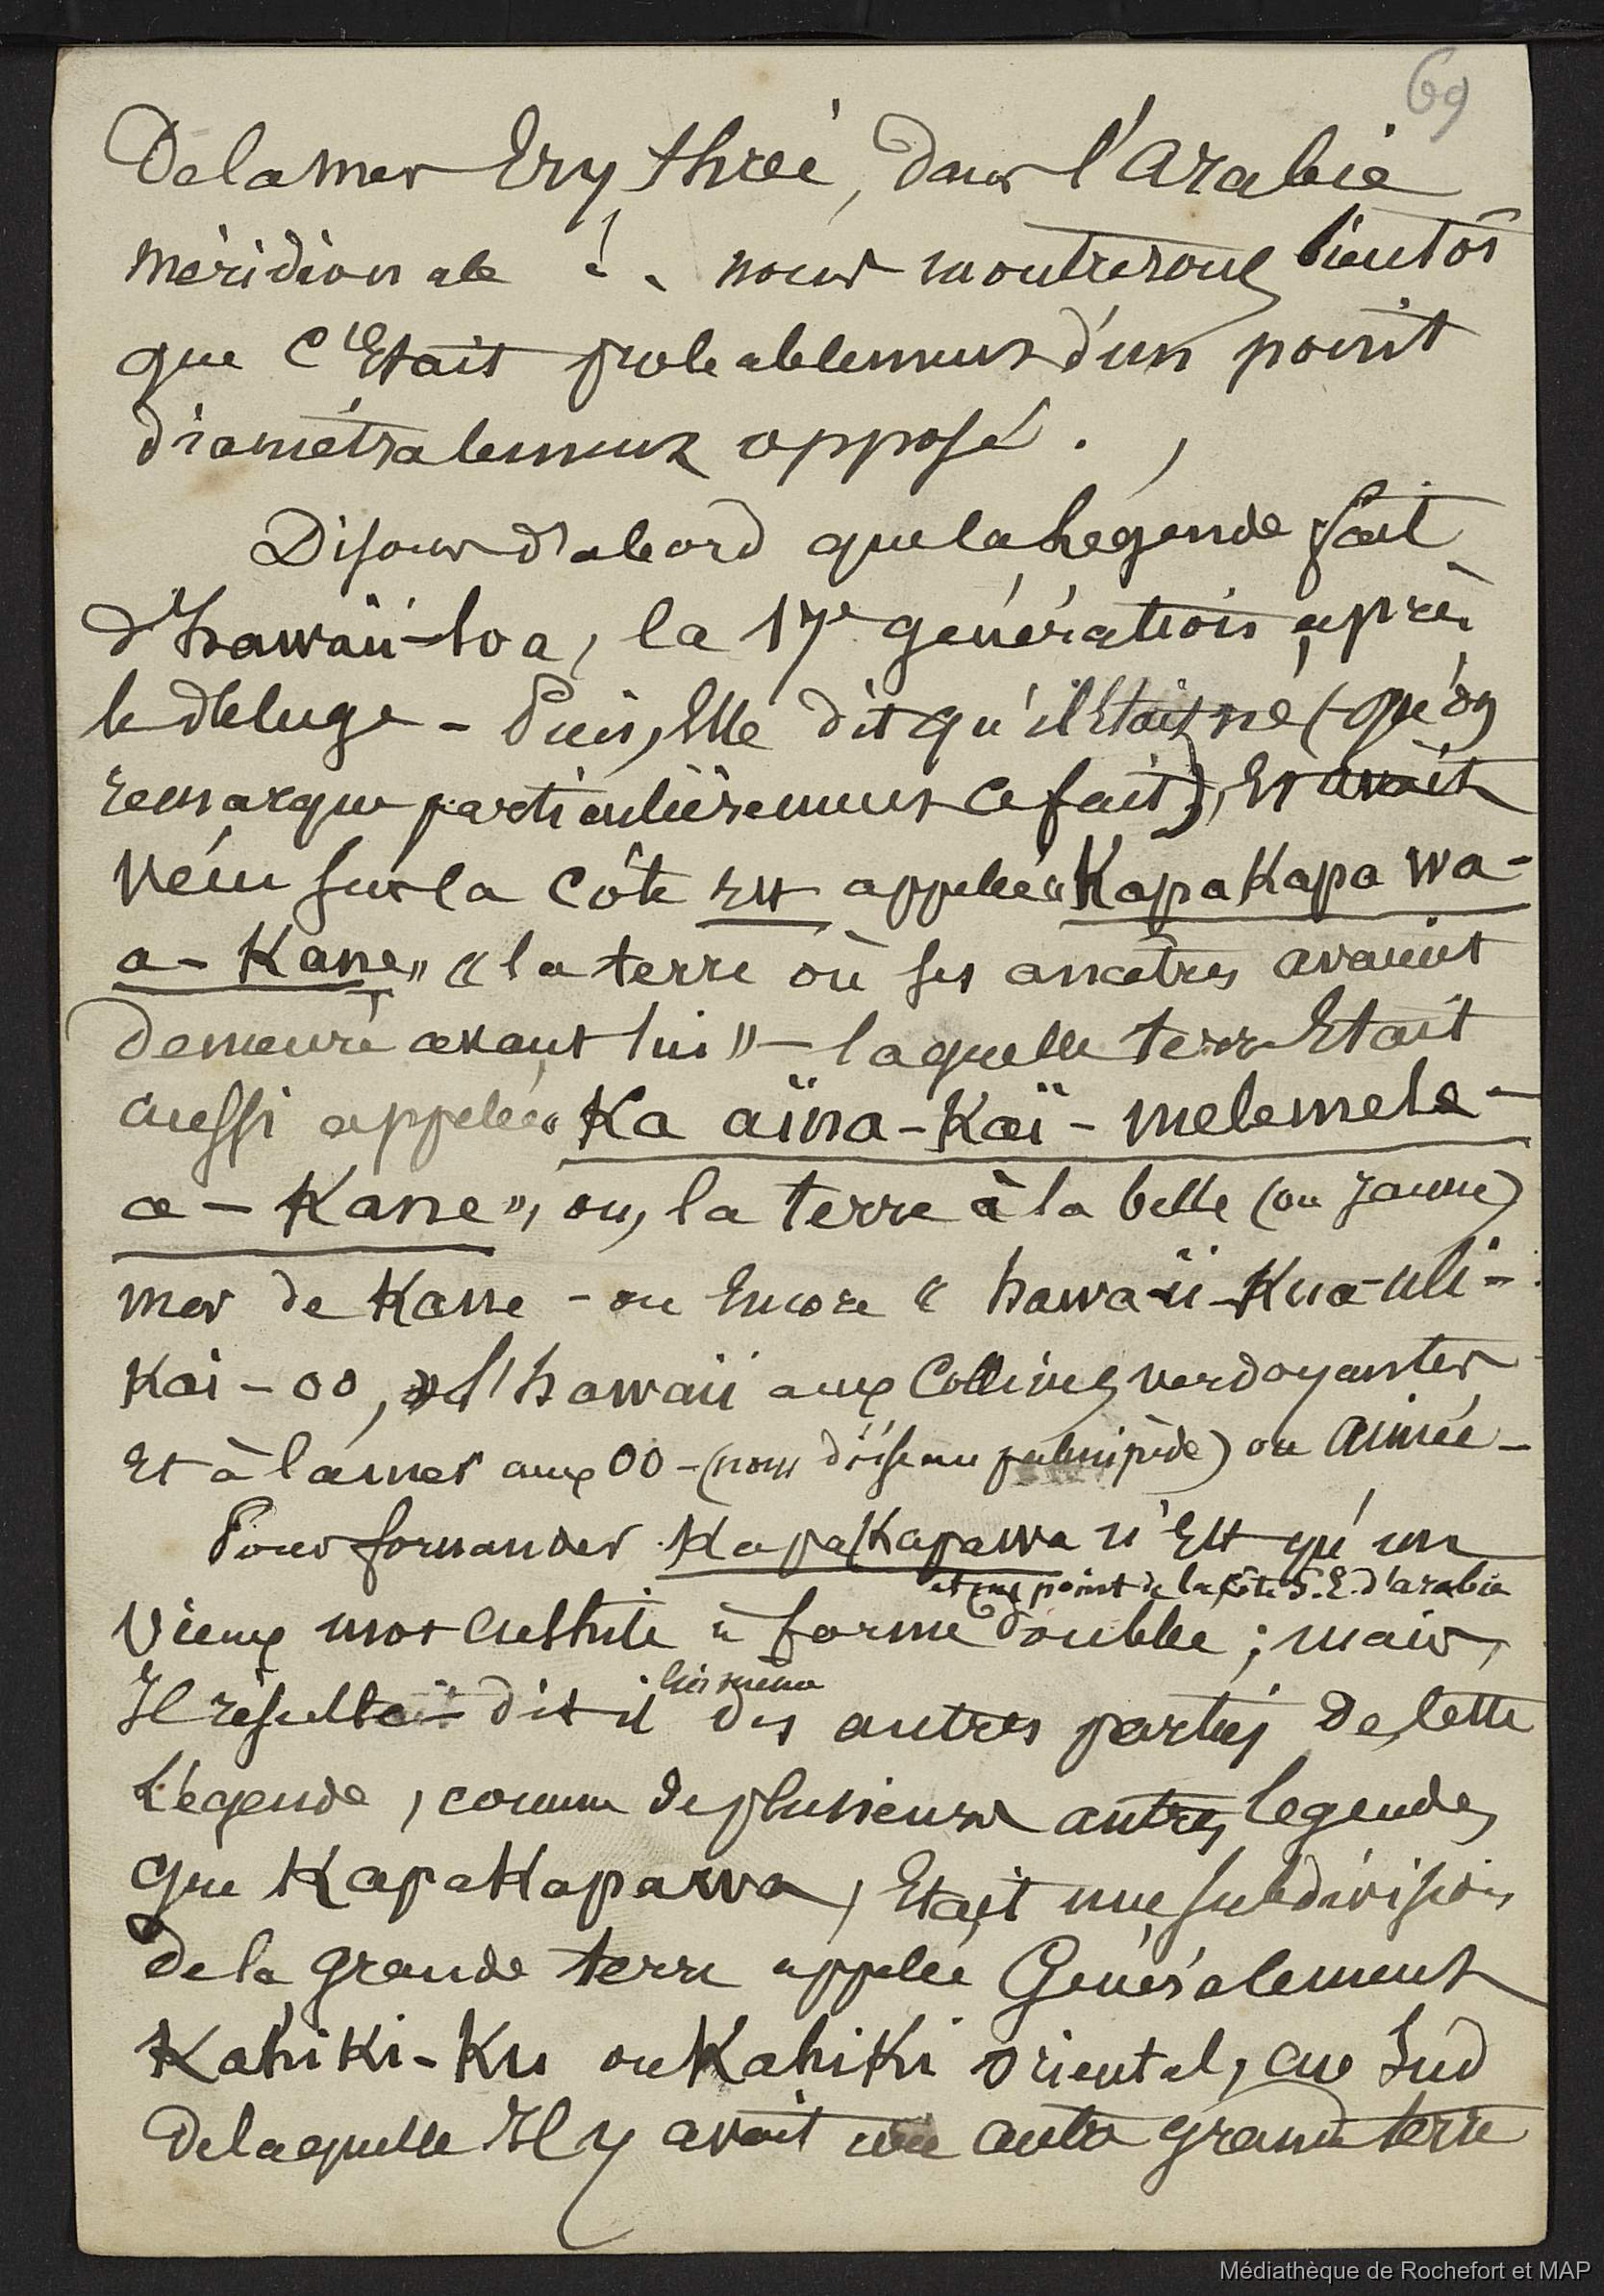 69
De la mer Erythréé, dans l'Arabie
méridionale à . nous montrerons bientôt
que c'Etait probablement d'un point
diamétralement opposé.
Disons d'abord que la Légende fait
d'hawaïi-loa, la 17e génération après
le déluge - Puis, Elle dit qu'il Etait né (qu'on
remarque particulièrement ce fait), Et avait
vécu sur la côte Est appelée "KapaKapa wa-
a-Kane" "la terre où ses ancêtres avaient
demeuré avant lui" - laquelle terre Etait
aussi appelée "Ka aïna-Kaï-melemele-
a-Kane", ou, la terre à la belle (ou jaune)
mer de Kane - ou Encore " hawaïi-Kua-uli-
Kaï-oo, " l'hawaïi aux Collines verdoyantes
Et à la mer aux OO - (nom d'oiseau palmipède) ou aimée -
Pour fornander KapaKapawa n'Est qu'un
et un point de la côte S.E. d'arabie
vieux mot cushite à forme double ; mais,
lui même
Il résulte dit il des autres parties de cette
Légende, comme de plusieurs autres légendes
que KapaKapawa, Etait une subdivision
de la grande terre appelée Généralement
Kahiki-Ku ou Kahiki oriental, au Sud
de laquelle Il y avait une autre grande terre
Médiathèque de Rochefort et MAP